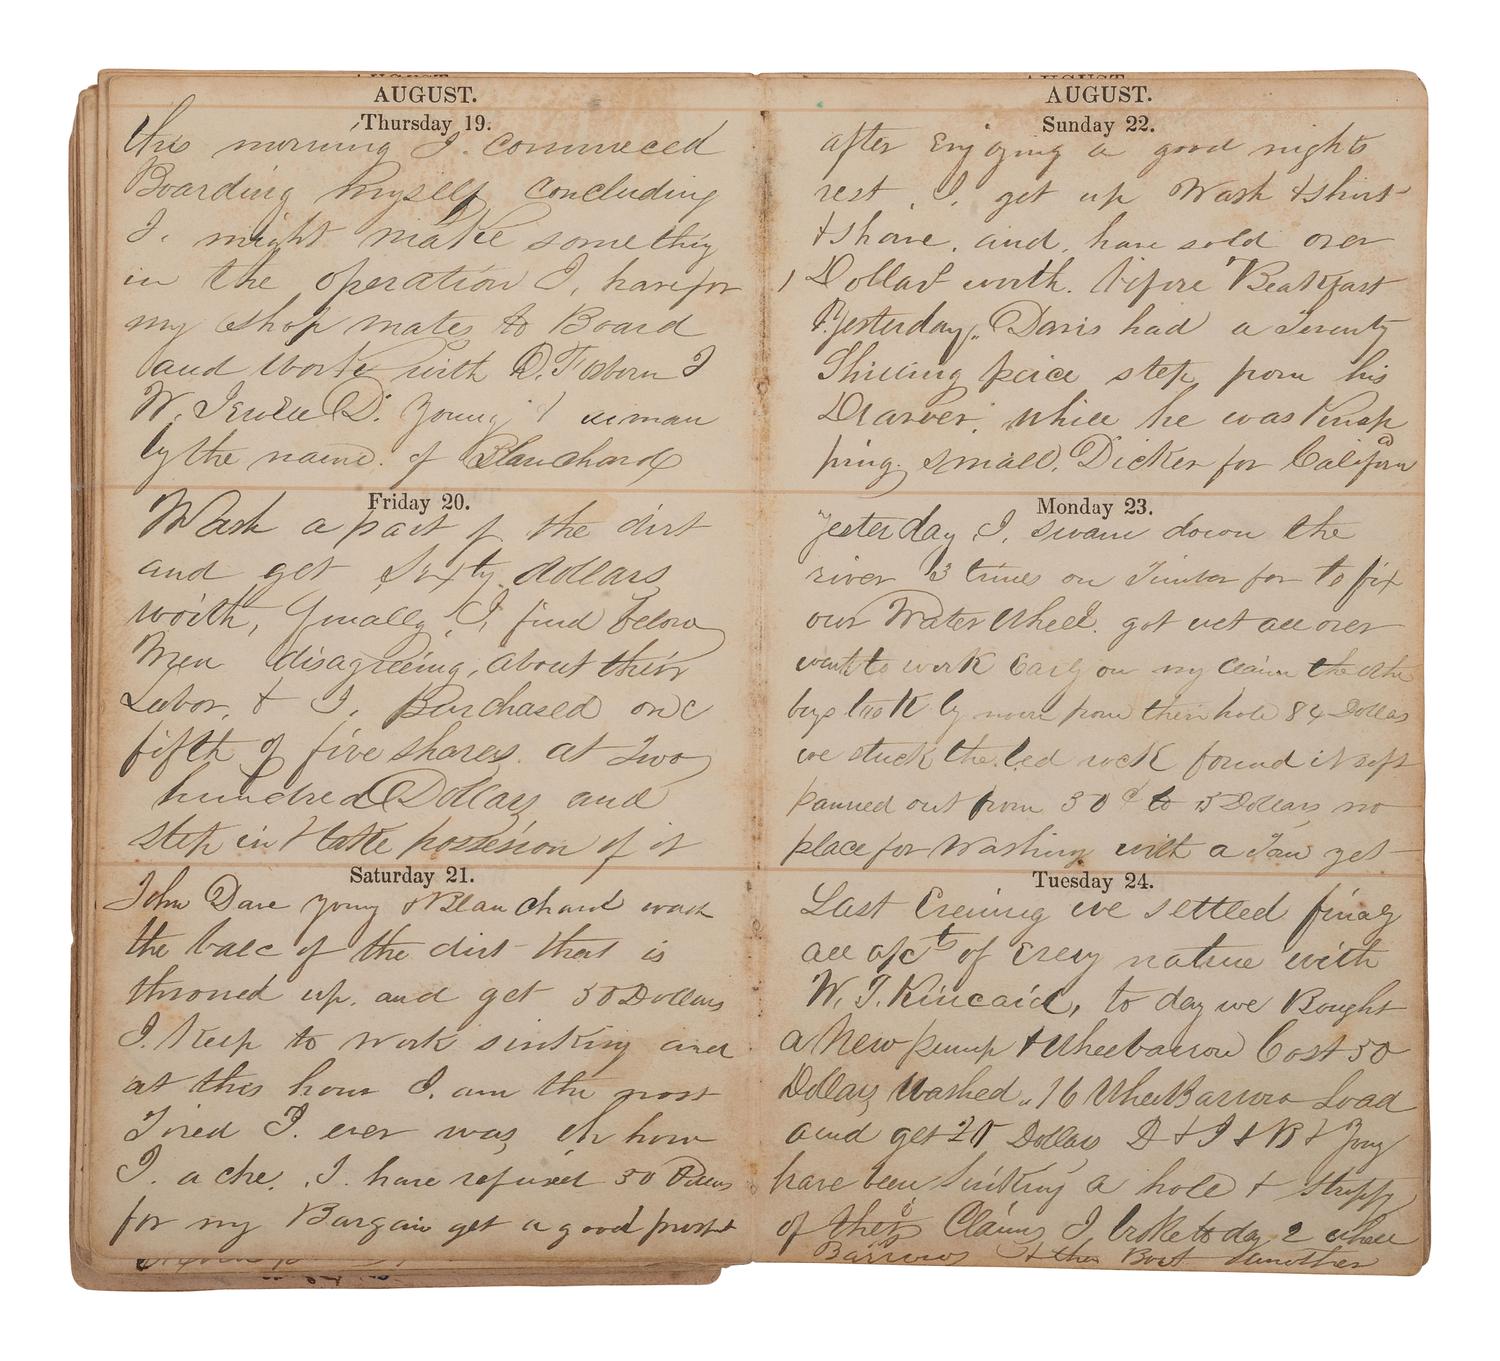 AUGUST.
Thursday 19.
this morning I. commneced
Boarding myself concluding
I. might make somethig
in the operation I, have for
my shop mates to Board
and work with D. T Osborn J
W. Jewell D. Young & a man
by the name. of Blanchard
Friday 20.
Wash a part of the dirt
and get Sixty dollars
worth, finally I, find below
Men disagreeing, about their
Labor, & I. Purchased one
fifth of five shares. at Two
hundred Dollars and
step in & take possesion of it
Saturday 21.
John Dave young & Blanchard wash
the balc of the dirt that is
throned up. and get 50 Dollars
I. Keep to work sinking and
at this hour I. am the most
Tired I. ever was, Oh how
I. ache. I. have refused 50 Dollars
for my Bargain get a good prospt
AUGUST.
Sunday 22.
after Enjoying a good nights
rest. I. get up Wash & shirt
& shave. and. have sold over
1 Dollars worth. before Breakfast
Yesterday,, Davis had a Twenty
Shilling peice step from his
Drawer. while he was Knap
ping. small. Dicker for Californ
Monday 23.
Yesterday I, swam down the
river 3 times on Timber for to fix
our Water Wheel. got wet all over
went to work Early on my claim the othe
boys took by noon from their hole 84 Dollas
we stuck the. bed rock found it soft
panned out from 30 c to 15 Dollars no
place for Washing with a Tom yet
Tuesday 24.
Last Evening we settled finaly
all a/cts of Every nature with
W. T. Kincaid, to day we Bought
a New pump & Wheebarrow Cost 50
Dollars Washed,, 16 WheeBarrow Load
and get 20 Dollars D & J & B & Yong
have been Sinking a hole & stripp
of their Claims I, broke to day 2 wheel
Barrows & the Boat Another